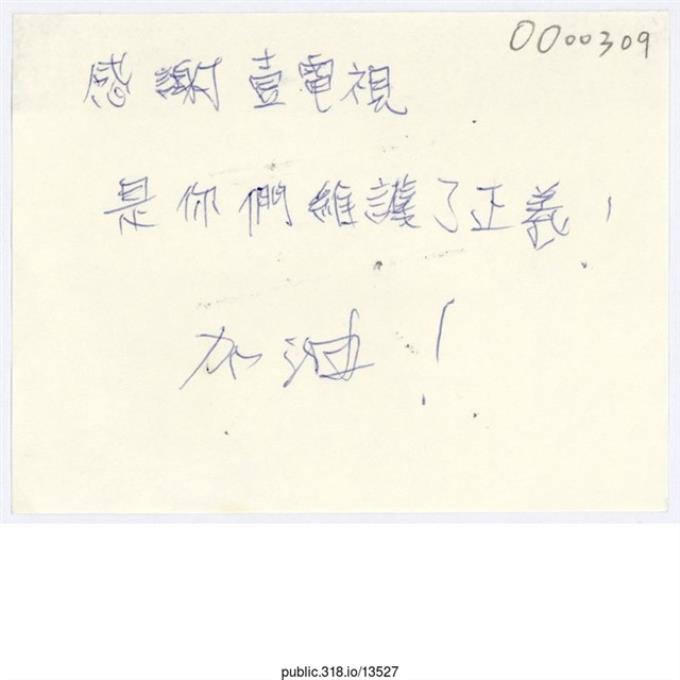 0000309
感謝壹電視
是你們維護了正義！
加油！
public.318.io/13527